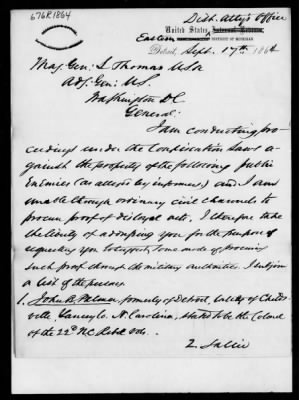 676R1864
Dist. Atty's Office
United States Internal Revenue,
Eastern DISTRICT OF MICHIGAN
Detroit, Sept. 17th 1864
Maj. Gen: L Thomas USA
Adj. Gen: U.S.
Washington DC
General:
I am conducting pro-
ceedings under the Confiscation Laws a-
gainst the property of the following public
Enemies (as asserted by informers) and I am
unable through ordinary civil channels to
procure proof of disloyal acts, I therefore take
the liberty of addressing you for the purpose of
requesting you to suggest some mode of procuring
such proof through the military authorities. I subjoin
a list of the persons.
1. John B. Palmer formerly of Detroit, lately of Childs-
ville, Yancey Co. N. Carolina, stated to be the Colonel
of the 22d N.C. Rebel Vols.
2. Sallie